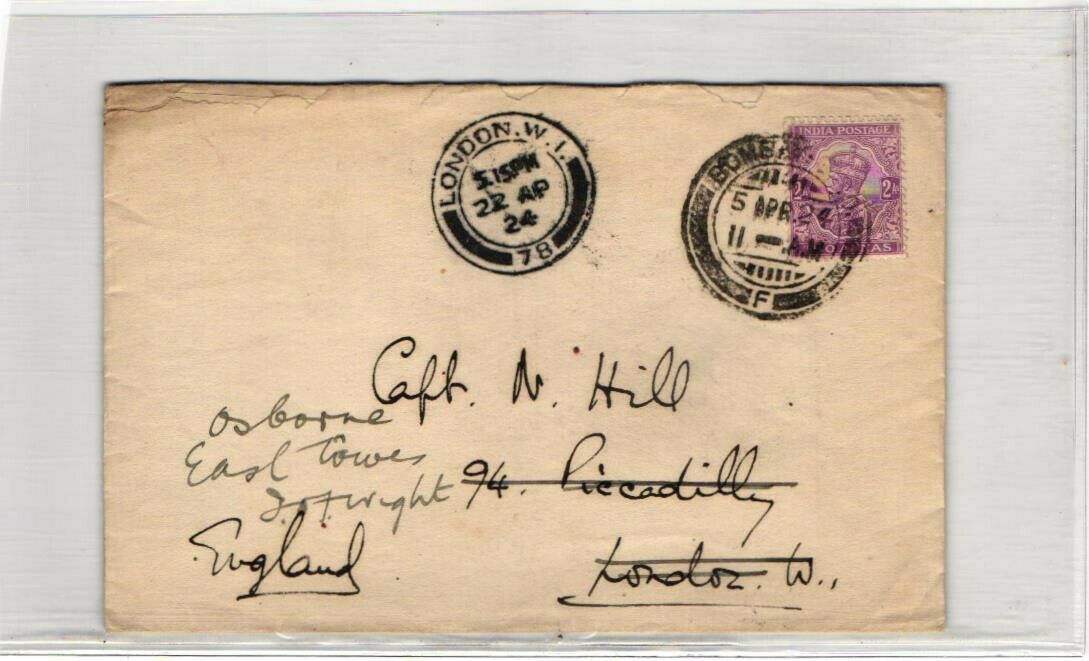 LONDON. W. 1.
5.15PM
22 AP
24
78
BOMBAY
5 APR 24
11 - A.M
F
INDIA POSTAGE
2A 2A
AS
Capt. N. Hill
Osborne
East Cowes
I. of Wight
94. Piccadilly
England
London. W.,